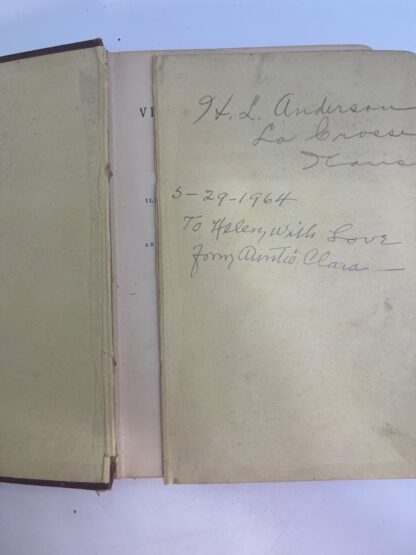 VI
IL
AS
H. L. Anderson
La Crosse
Kans
5-29-1964
To Helen, With Love
from Auntie Clara —